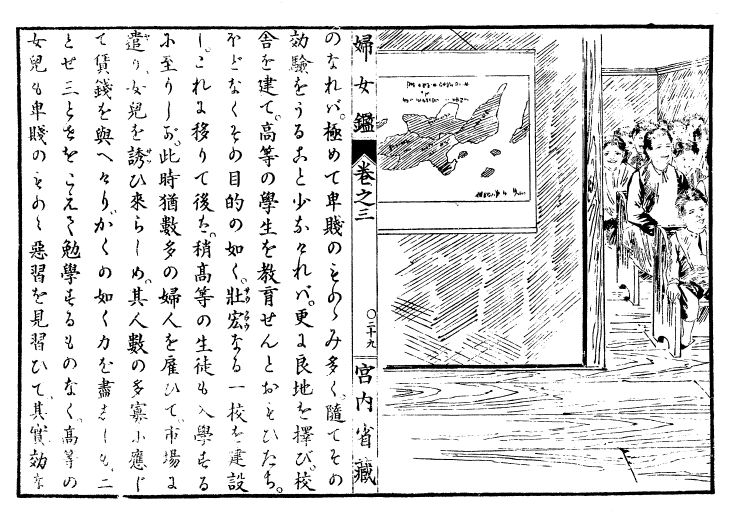 婦女鑑 巻之三 ○二十九 宮内省藏
のなれバ。極めて卑賤のものゝみ多く。隨てその
効驗をうること少なけれバ。更に良地を擇び。校
舍を建て。高等の學生を教育せんとおもひたち。
ほどなくその目的の如く。壯宏なる一校を建設
し。これに移りて後は。稍高等の生徒も入學する
に至りしが。此時猶數多の婦人を雇ひて。市場に
遣り。女兒を誘ひ來らしめ。其人數の多寡に應じ
て賃錢を與へけり。かくの如く力を盡せしも。二
とせ三とせをこえて勉學するものなく。高等の
女兒も卑賤のものゝ惡習を見習ひて。其實効な